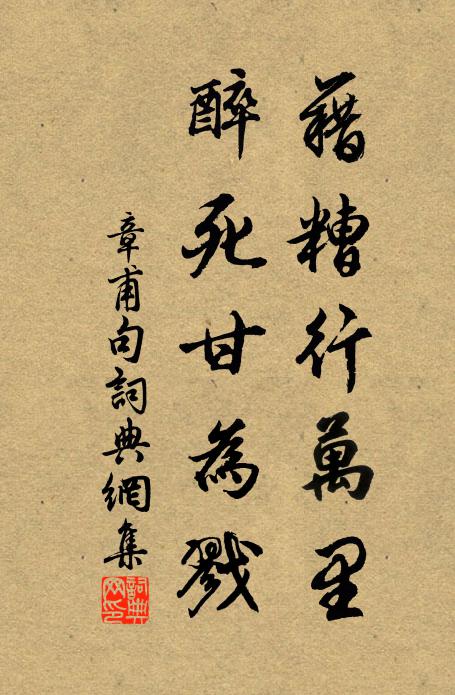 藉糟行萬里
醉死甘為戮
章甫句詞典網集
詞典
网印